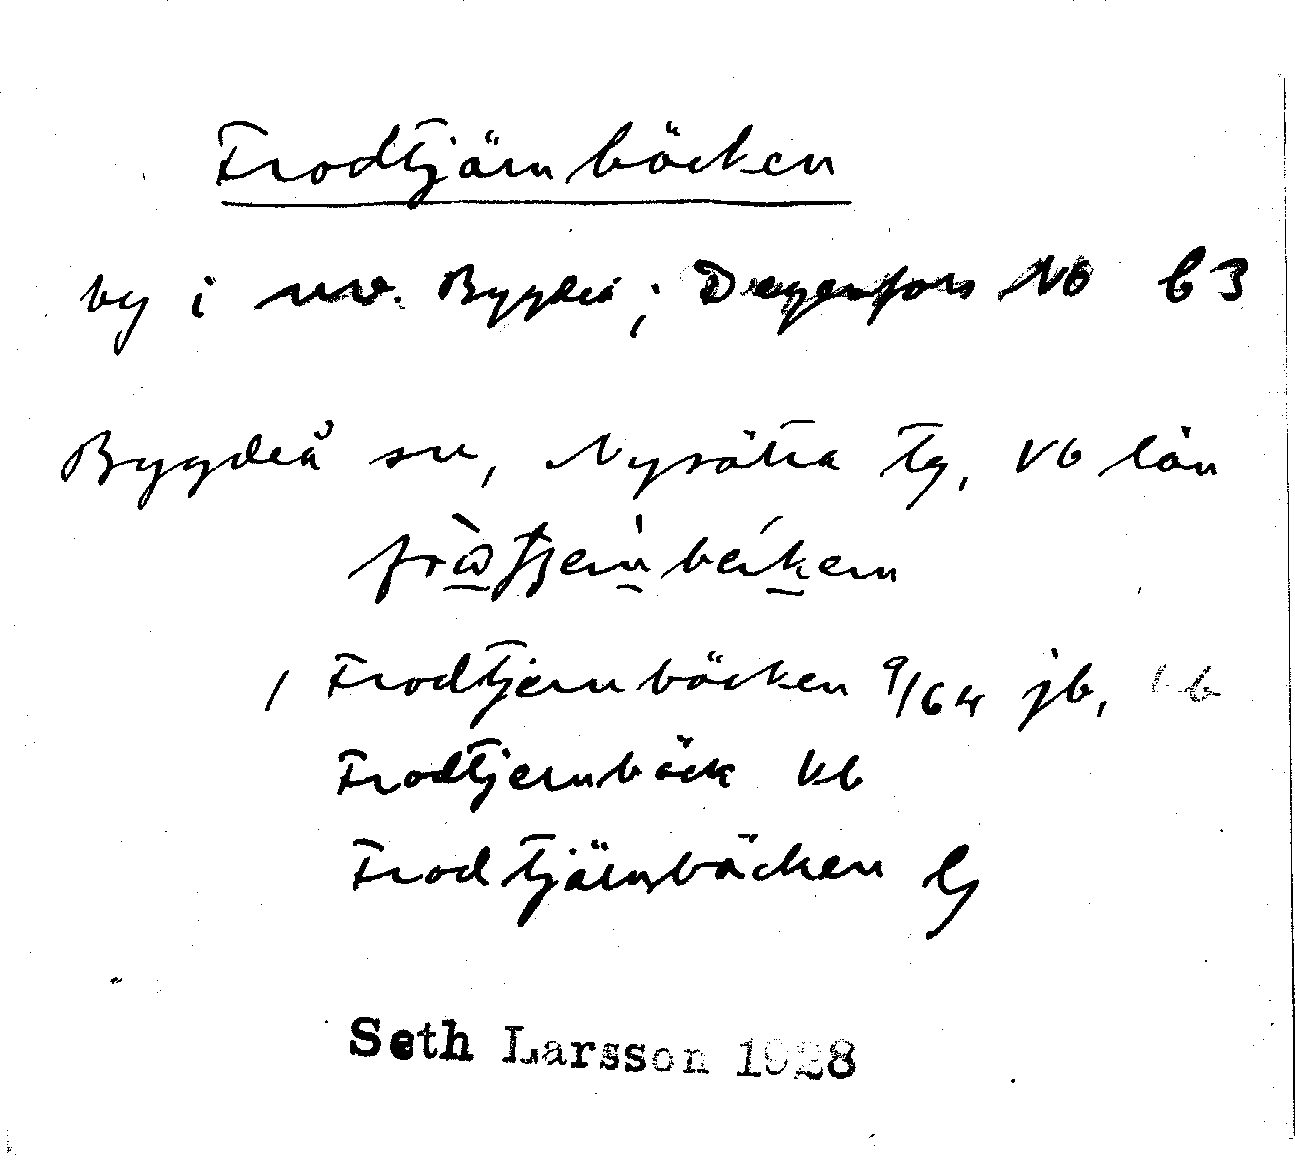 Frodtjärnbäcken
by i nv. Bygdeå; Degerfors NO b3
Bygdeå sn, Nysätra tg, Vb län
Frodtjernbäcken 9/64 jb, Vb
Frodtjernbäck Vb
Frodtjärnbäcken
Seth Larsson 1928